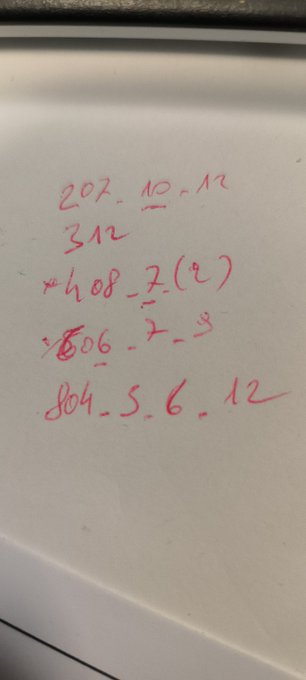 207 - 10 - 12
312
408 - 7 - (2)
606 - 7 - 9
804 - 5 - 6 - 12